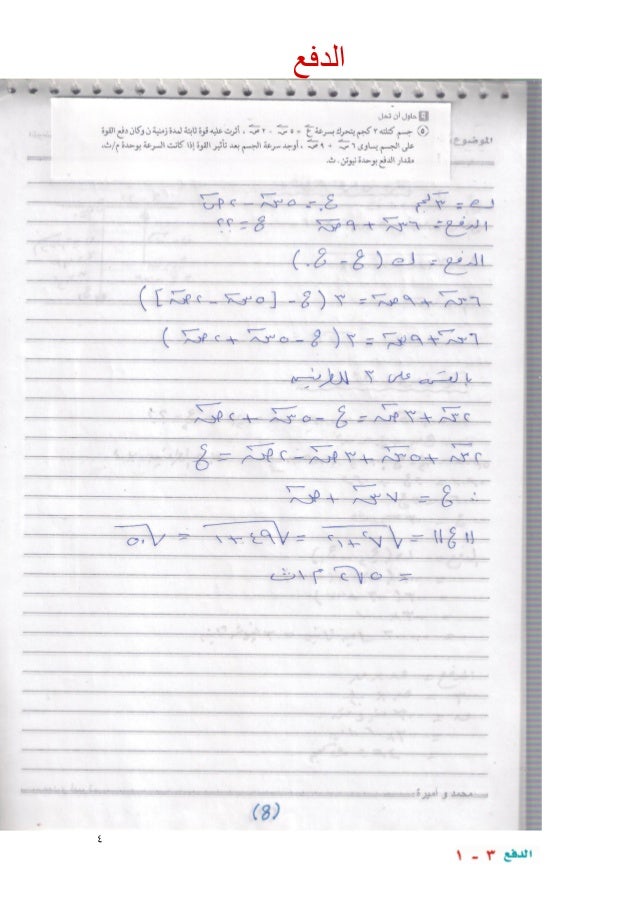 الدفع
حاول أن تحل
٥ جسم كتلته ٣ كجم يتحرك بسرعة ع = ٥ س - ٢ ص ، أثرت عليه قوة ثابتة لمدة زمنية ن وكان دفع القوة
على الجسم يساوى ٦ س + ٩ ص ، أوجد سرعة الجسم بعد تأثير القوة إذا كانت السرعة بوحدة م/ث،
مقدار الدفع بوحدة نيوتن . ث.
الموضوع
ك = ٣ كجم ع. = ٥س - ٢ص
الدفع = ٦س + ٩ص ع = ؟؟
الدفع = ك (ع - ع.)
٦س + ٩ص = ٣ (ع - [٥س - ٢ص])
٦س + ٩ص = ٣ (ع - ٥س + ٢ص)
بالقسمة على ٣ للطرفين
٢س + ٣ص = ع - ٥س + ٢ص
٢س + ٥س + ٣ص - ٢ص = ع
∴ ع = ٧س + ص
||ع|| = √٧²+١² = √٤٩+١ = √٥٠
= ٥√٢ م/ث
محمد و أميرة
(8)
٤
الدفع ٣ - ١